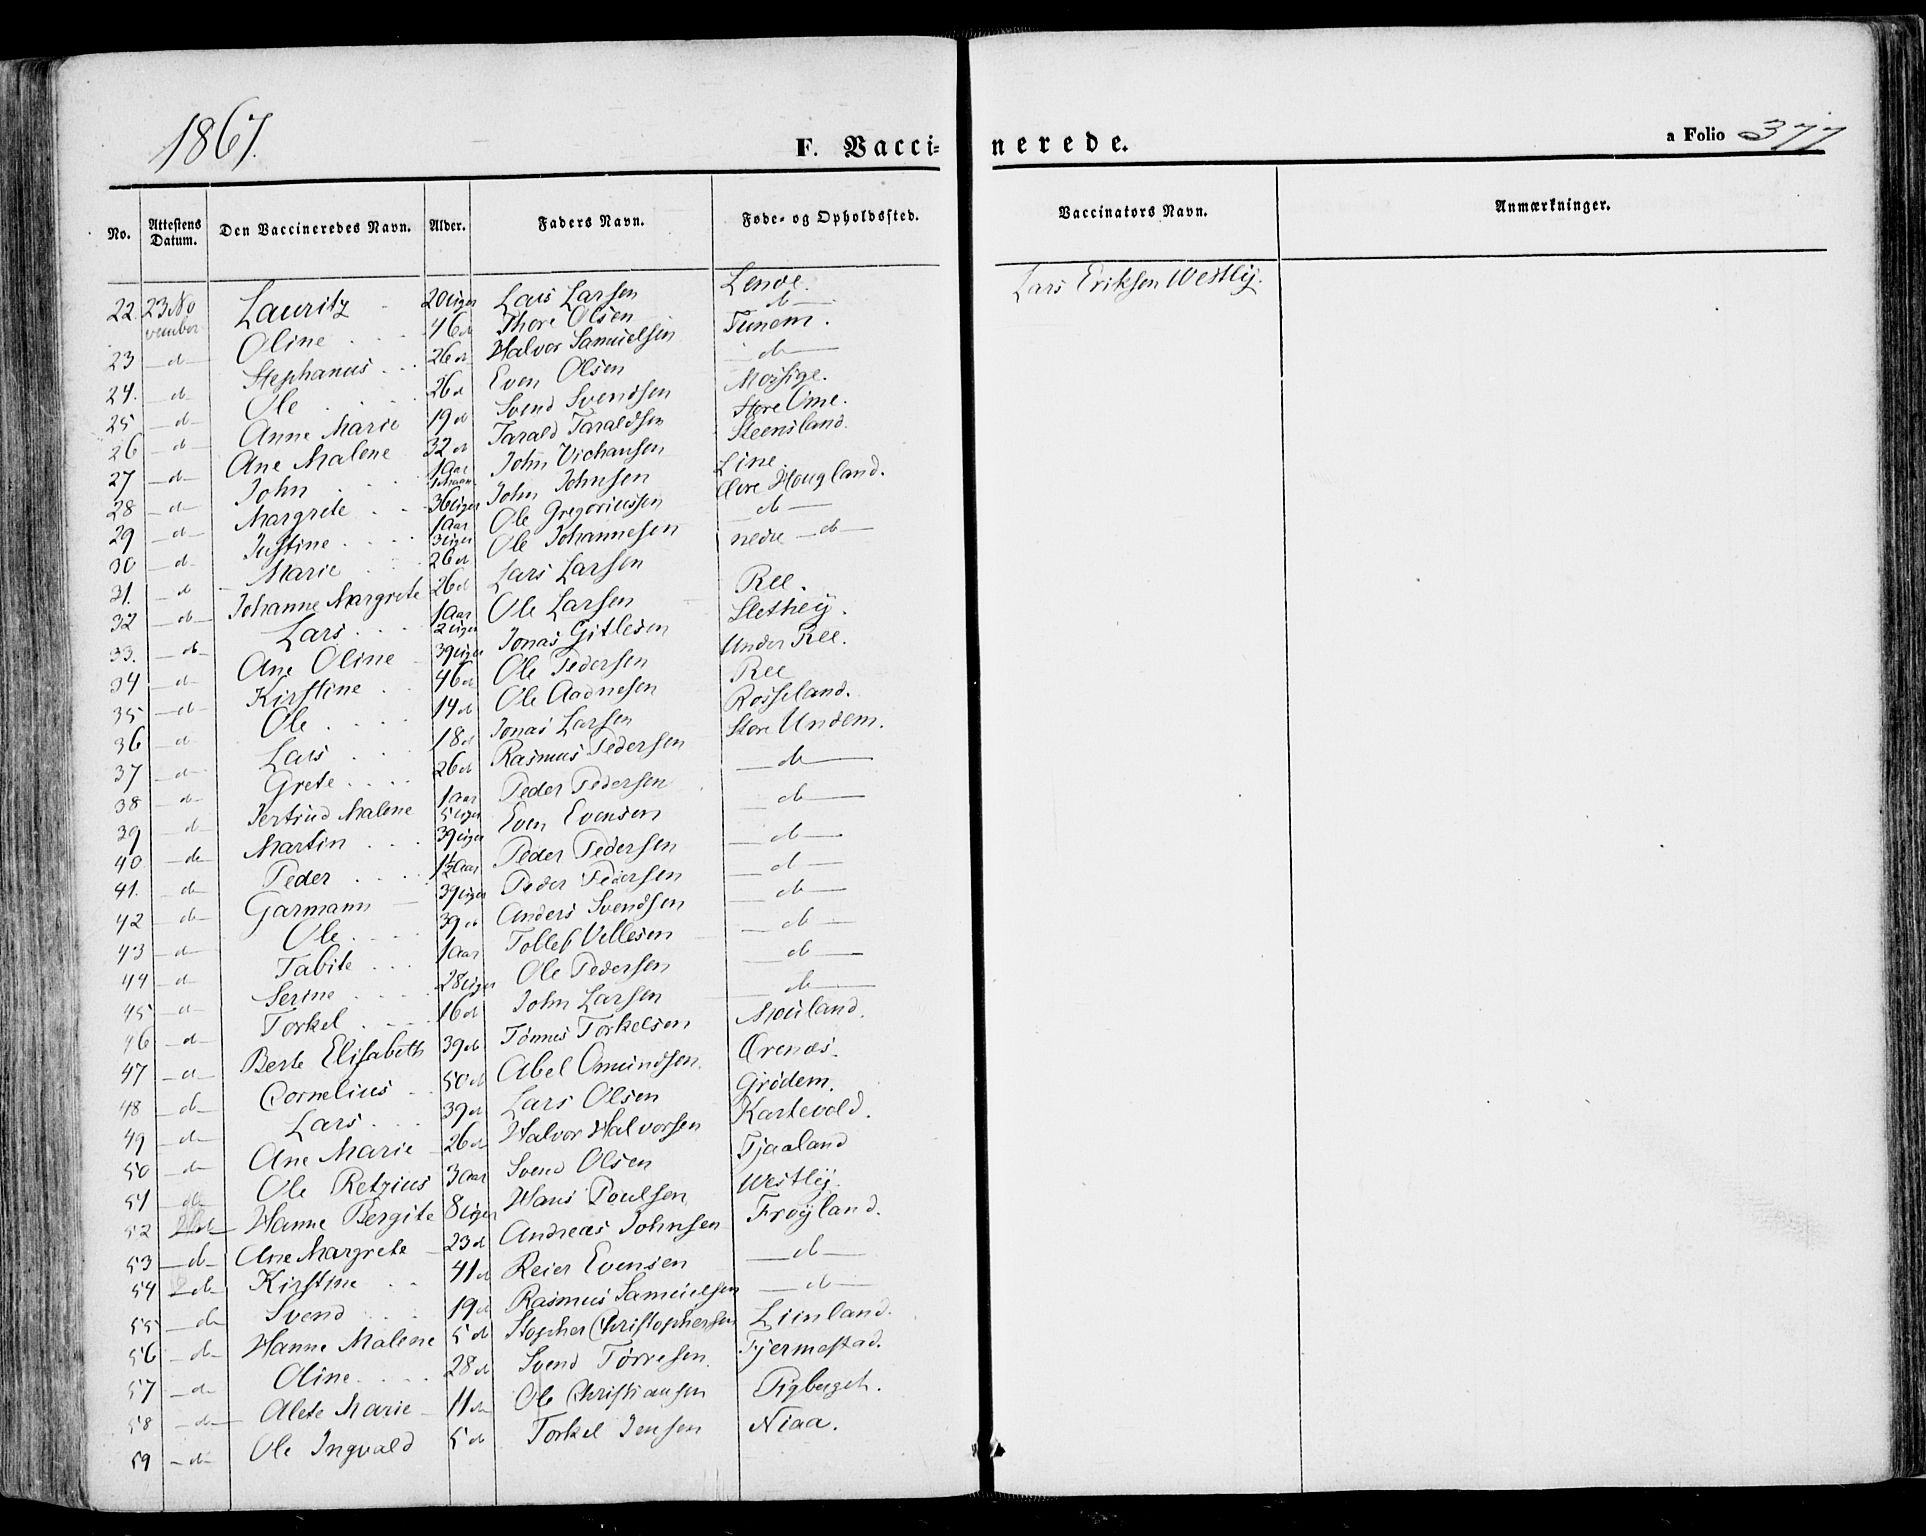 1867.
F. Vaccinerede.
a Folio 377
No. Attestens Datum. Den Vaccineredes Navn. Alder. Faders Navn. Føde- og Opholdssted. Vaccinators Navn. Anmærkninger.
22. 23 November Lauritz 20 Uger Lars Larsen Lende. Lars Eriksen Westly.
23 do Oline 46 do Thore Olsen do
24. do Stephanus 26 do Halvor Samuelsen Tunem.
25 do Ole 26 do Even Olsen do
26 do Anne Marie 19 do Svend Svendsen Mossige.
27 do Ane Malene 32 do Tarald Taraldsen Store Ome.
28 do John 1 Aar John Steensland.
29 do Margrete 36 Uger John Johnsen Line
30 do Justine 1 Aar 3 Uger Ole Gregoriussen Øvre Hougland.
31. do Marie 26 do Ole Johannesen do
32 do Johanne Margrete 26 do Lars Larsen nedre do
33. do Lars 1 Aar 2 Uger Ole Larsen Ree.
34 do Ane Oline 39 Uger Jonas Gitlesen Slethey.
35 do Kirstine 46 do Ole Pedersen Under Ree.
36 do Ole 14 do Ole Aadnesen Ree
37 do Lars 18 do Jonas Larsen Rosseland.
38 do Grete 26 do Rasmus Pedersen Store Undem.
39 do Jertrud Malene 1 Aar 5 Uger Peder Pedersen do
40 do Martin 39 Uger Even Evensen do
41. do Peder 1½ Aar Peder Pedersen do
42 do Garmann 39 Uger Peder Pedersen do
43 do Ole 39 do Anders Svendsen do
44 do Tabite 1 Aar Tollef Vellesen do
45 do Serine 28 Uger Ole Pedersen do
46 do Torkel 16 do John Larsen do
47 do Berte Elisabeth 39 do Tønnes Torkelsen Mouland.
48 do Cornelius 50 do Abel Omundsen. Ørenæs.
49 do Lars 39 do Lars Olsen Grødem.
50 do Ane Marie 26 do Halvor Halvorsen Kartevold.
51 do Ole Retzius 3 Aar Svend Olsen Tjaaland
52 do Hanne Bergite 8 Uger Hans Poulsen Westly.
53 do Ane Margrete 23 do Andreas Johnsen Frøyland.
54 do Kirstine 41 do Reier Evensen do
55 do Svend 19 do Rasmus Samuelsen do
56 do Hanne Malene 5 do Stopher Christophersen Liinland.
57 do Oline 28 do Svend Tørresen. Fjermestad.
58 do Alete Marie 11 do Ole Christiansen
59 do Ole Ingvald 5 do Torkel Jensen Niaa.